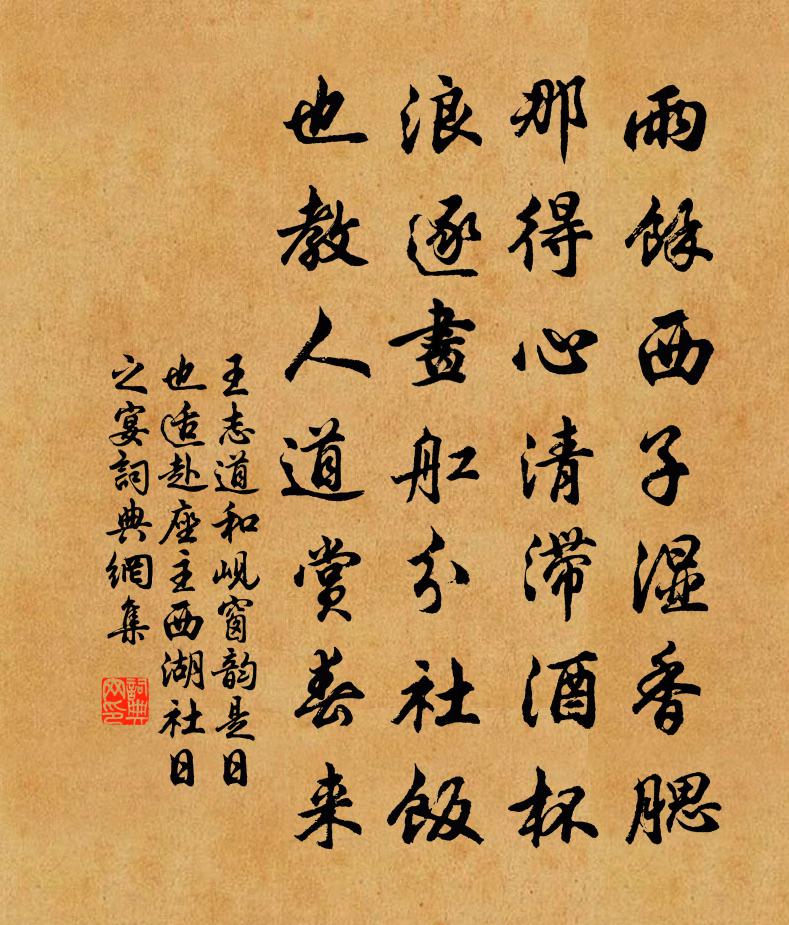 雨餘西子湿香腮
那得心清滞酒杯
浪逐畫舡分社飯
也教人道賞春来
王志道和峴窗韵是日
也适赴座主西湖社日
之宴詞典網集
詞典
网印